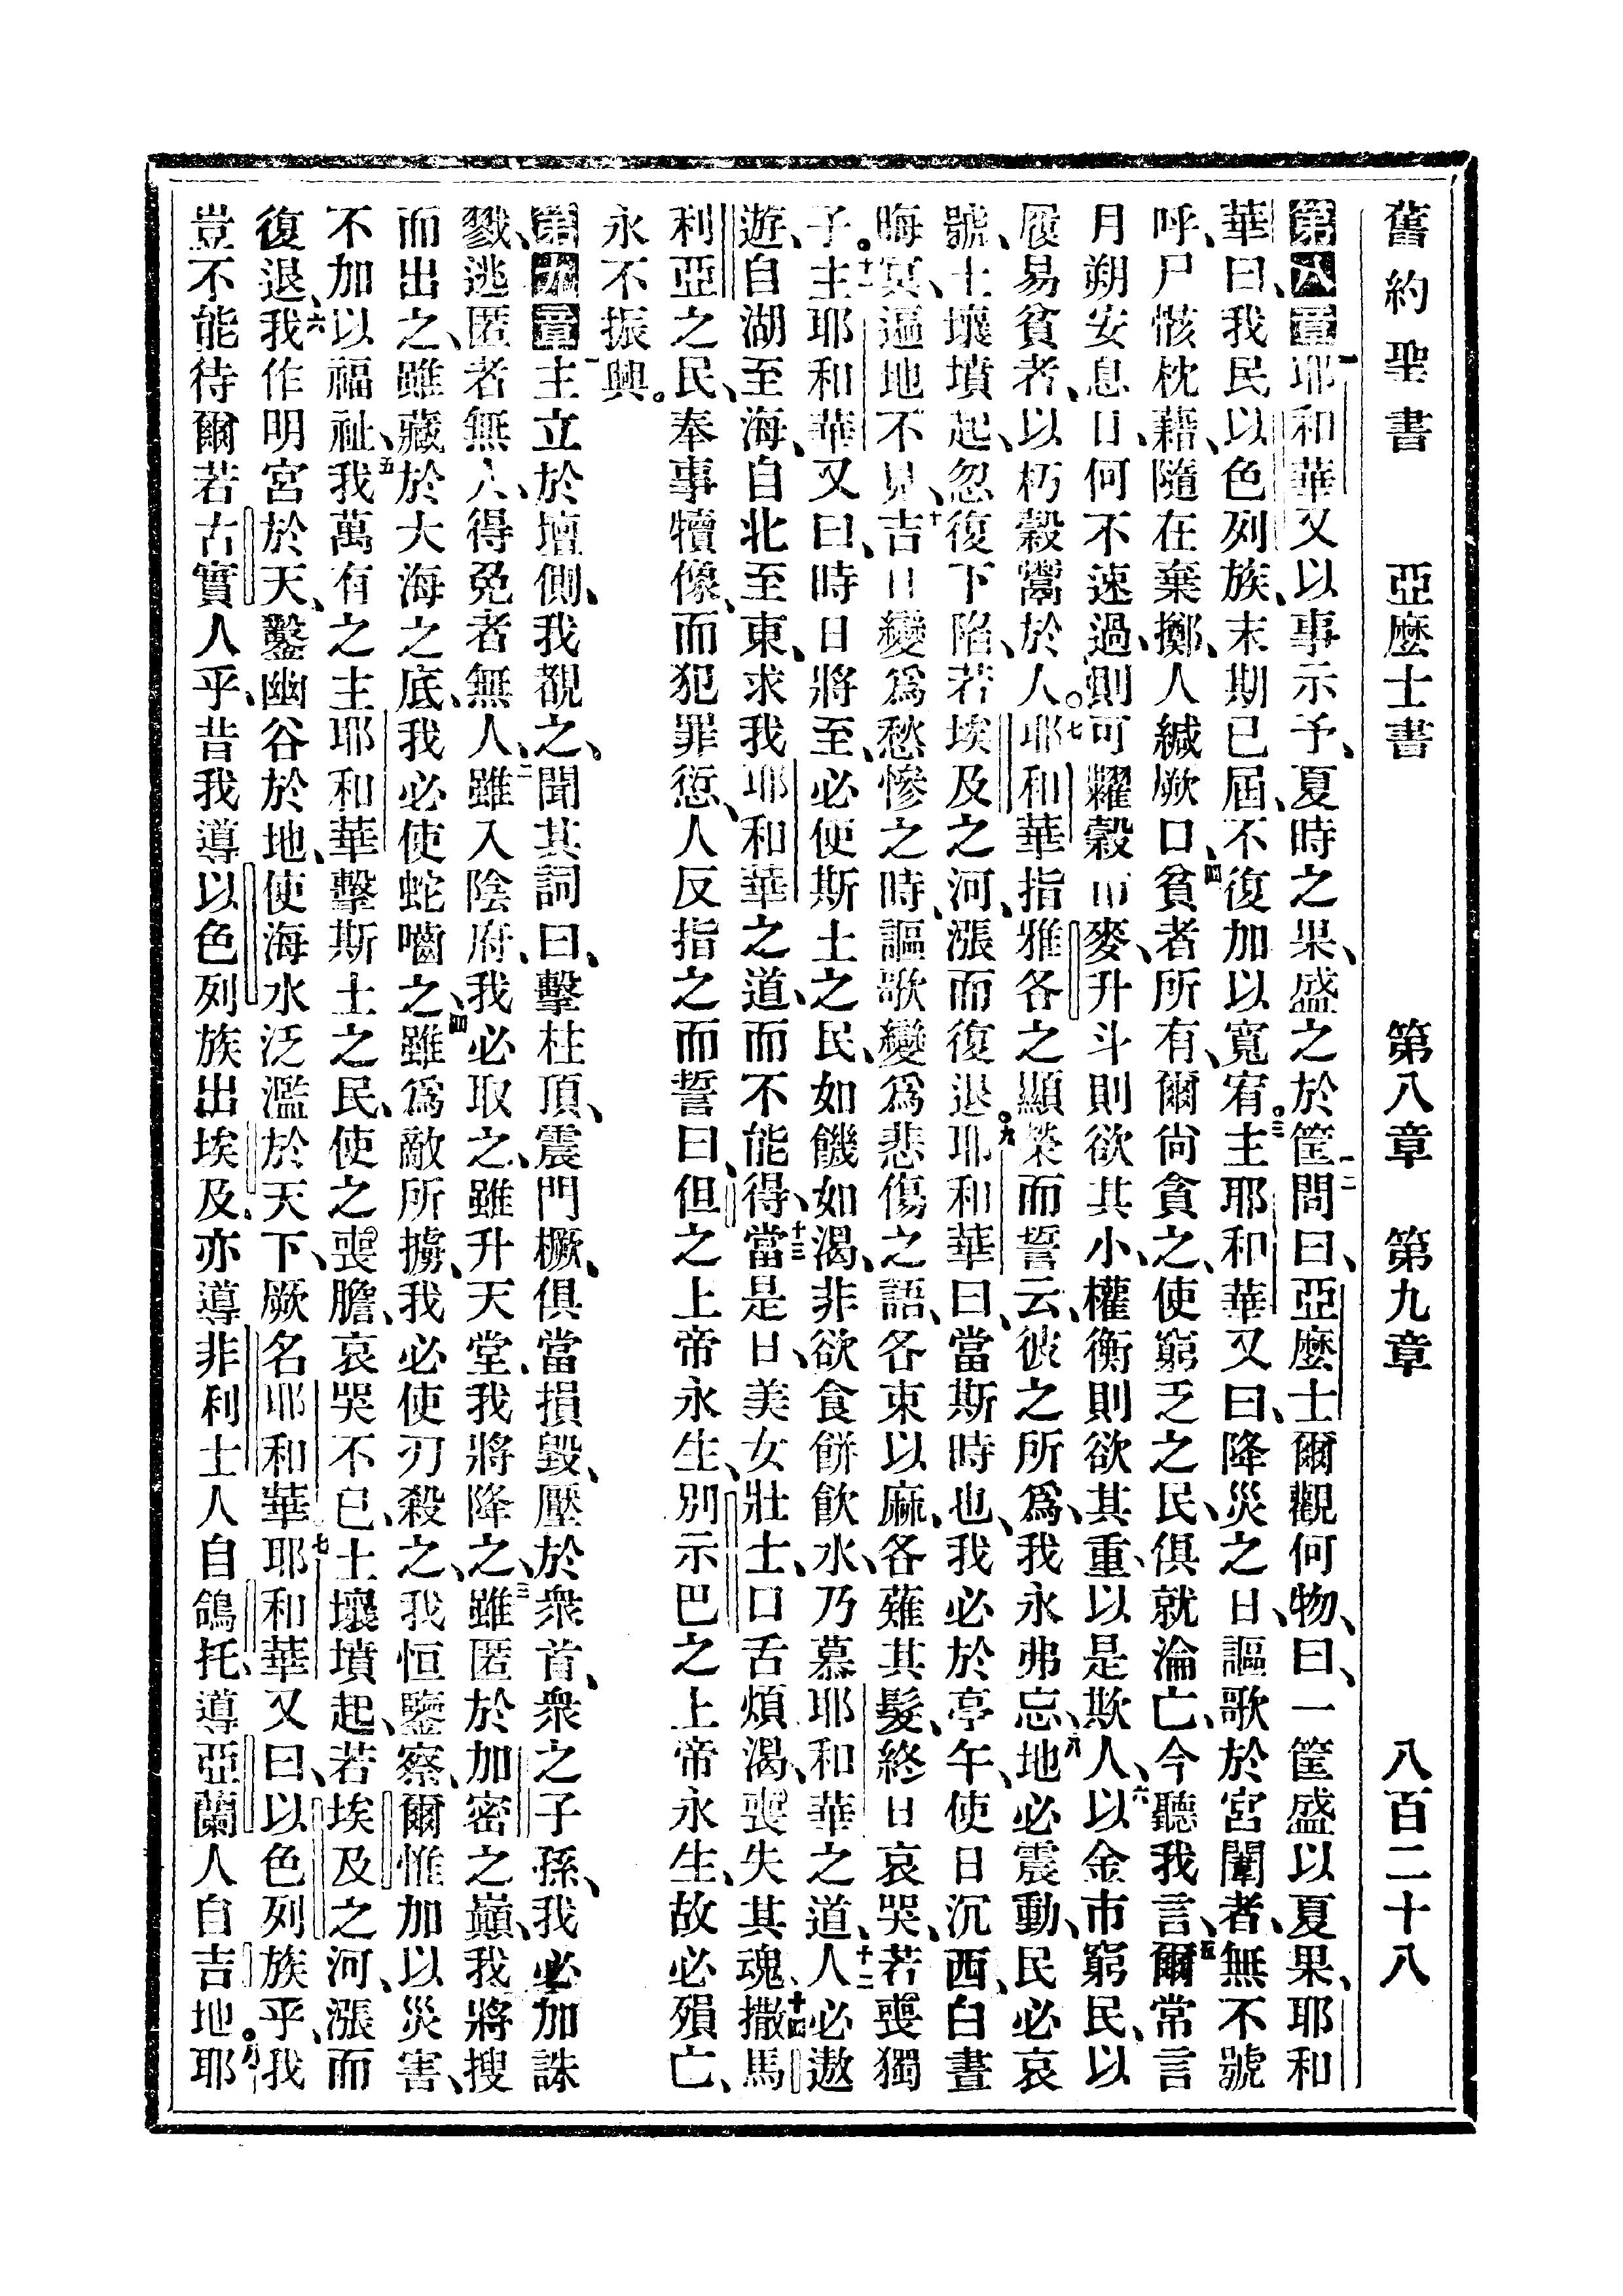 舊約聖書 亞麼士書 第八章 第九章 八百二十八
第八章一耶和華又以事示予、夏時之果、盛之於筐、二問曰、亞麼士爾觀何物、曰、一筐盛以夏果、耶和
華曰、我民以色列族、末期已屆、不復加以寬宥。三主耶和華又曰、降災之日、謳歌於宮闈者、無不號
呼、尸骸枕藉、隨在棄擲、人緘厥口、四貧者所有、爾尙貪之、使窮乏之民、俱就淪亡、今聽我言、五爾常言
月朔安息日、何不速過、則可糶穀市麥、升斗則欲其小、權衡則欲其重、以是欺人、六以金市窮民、以
履易貧者、以朽穀鬻於人。七耶和華指雅各之顯榮而誓云、彼之所爲、我永弗忘、八地必震動、民必哀
號、土壤墳起、忽復下陷、若埃及之河、漲而復退。九耶和華曰、當斯時也、我必於亭午、使日沉西、白晝
晦冥、遍地不見、十吉日變爲愁慘之時、謳歌變爲悲傷之語、各束以麻、各薙其髮、終日哀哭、若喪獨
子。十一主耶和華又曰、時日將至、必使斯土之民、如饑如渴、非欲食餅飮水、乃慕耶和華之道、十二人必遨
遊、自湖至海、自北至東、求我耶和華之道、而不能得、十三當是日、美女壯士、口舌煩渴、喪失其魂、十四撒馬
利亞之民、奉事犢像、而犯罪愆、人反指之而誓曰、但之上帝永生、別示巴之上帝永生、故必殞亡、
永不振興。
第九章一主立於壇側、我覩之、聞其詞曰、擊柱頂、震門橛、俱當損毀、壓於衆首、衆之子孫、我必加誅
戮、逃匿者無人、得免者無人、二雖入陰府、我必取之、雖升天堂、我將降之、三雖匿於加密之巔、我將搜
而出之、雖藏於大海之底、我必使蛇嚙之、四雖爲敵所擄、我必使刃殺之、我恒鑒察、爾惟加以災害、
不加以福祉、五我萬有之主耶和華、擊斯土之民、使之喪膽、哀哭不已、土壤墳起、若埃及之河、漲而
復退、六我作明宮於天、鑿幽谷於地、使海水泛濫於天下、厥名耶和華、七耶和華又曰、以色列族乎、我
豈不能待爾若古實人乎、昔我導以色列族出埃及、亦導非利士人自鴿托、導亞蘭人自吉地。八耶